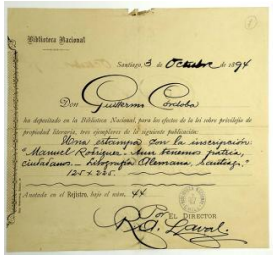 Biblioteca Nacional
Santiago, 3 de Octubre de 1894
Don Guillermo Córdoba
ha depositado en la Biblioteca Nacional, para los efectos de la lei sobre privilejio de
propiedad literaria, tres ejemplares de la siguiente publicacion:
Una estampa con la inscripcion
"Manuel Rodriguez. Aun tenemos patria,
ciudadanos. - Litografía Alemana, Santiago."
125 x 225.
Anotado en el Rejistro, bajo el núm. 44
Por
EL DIRECTOR
R. A. Laval.